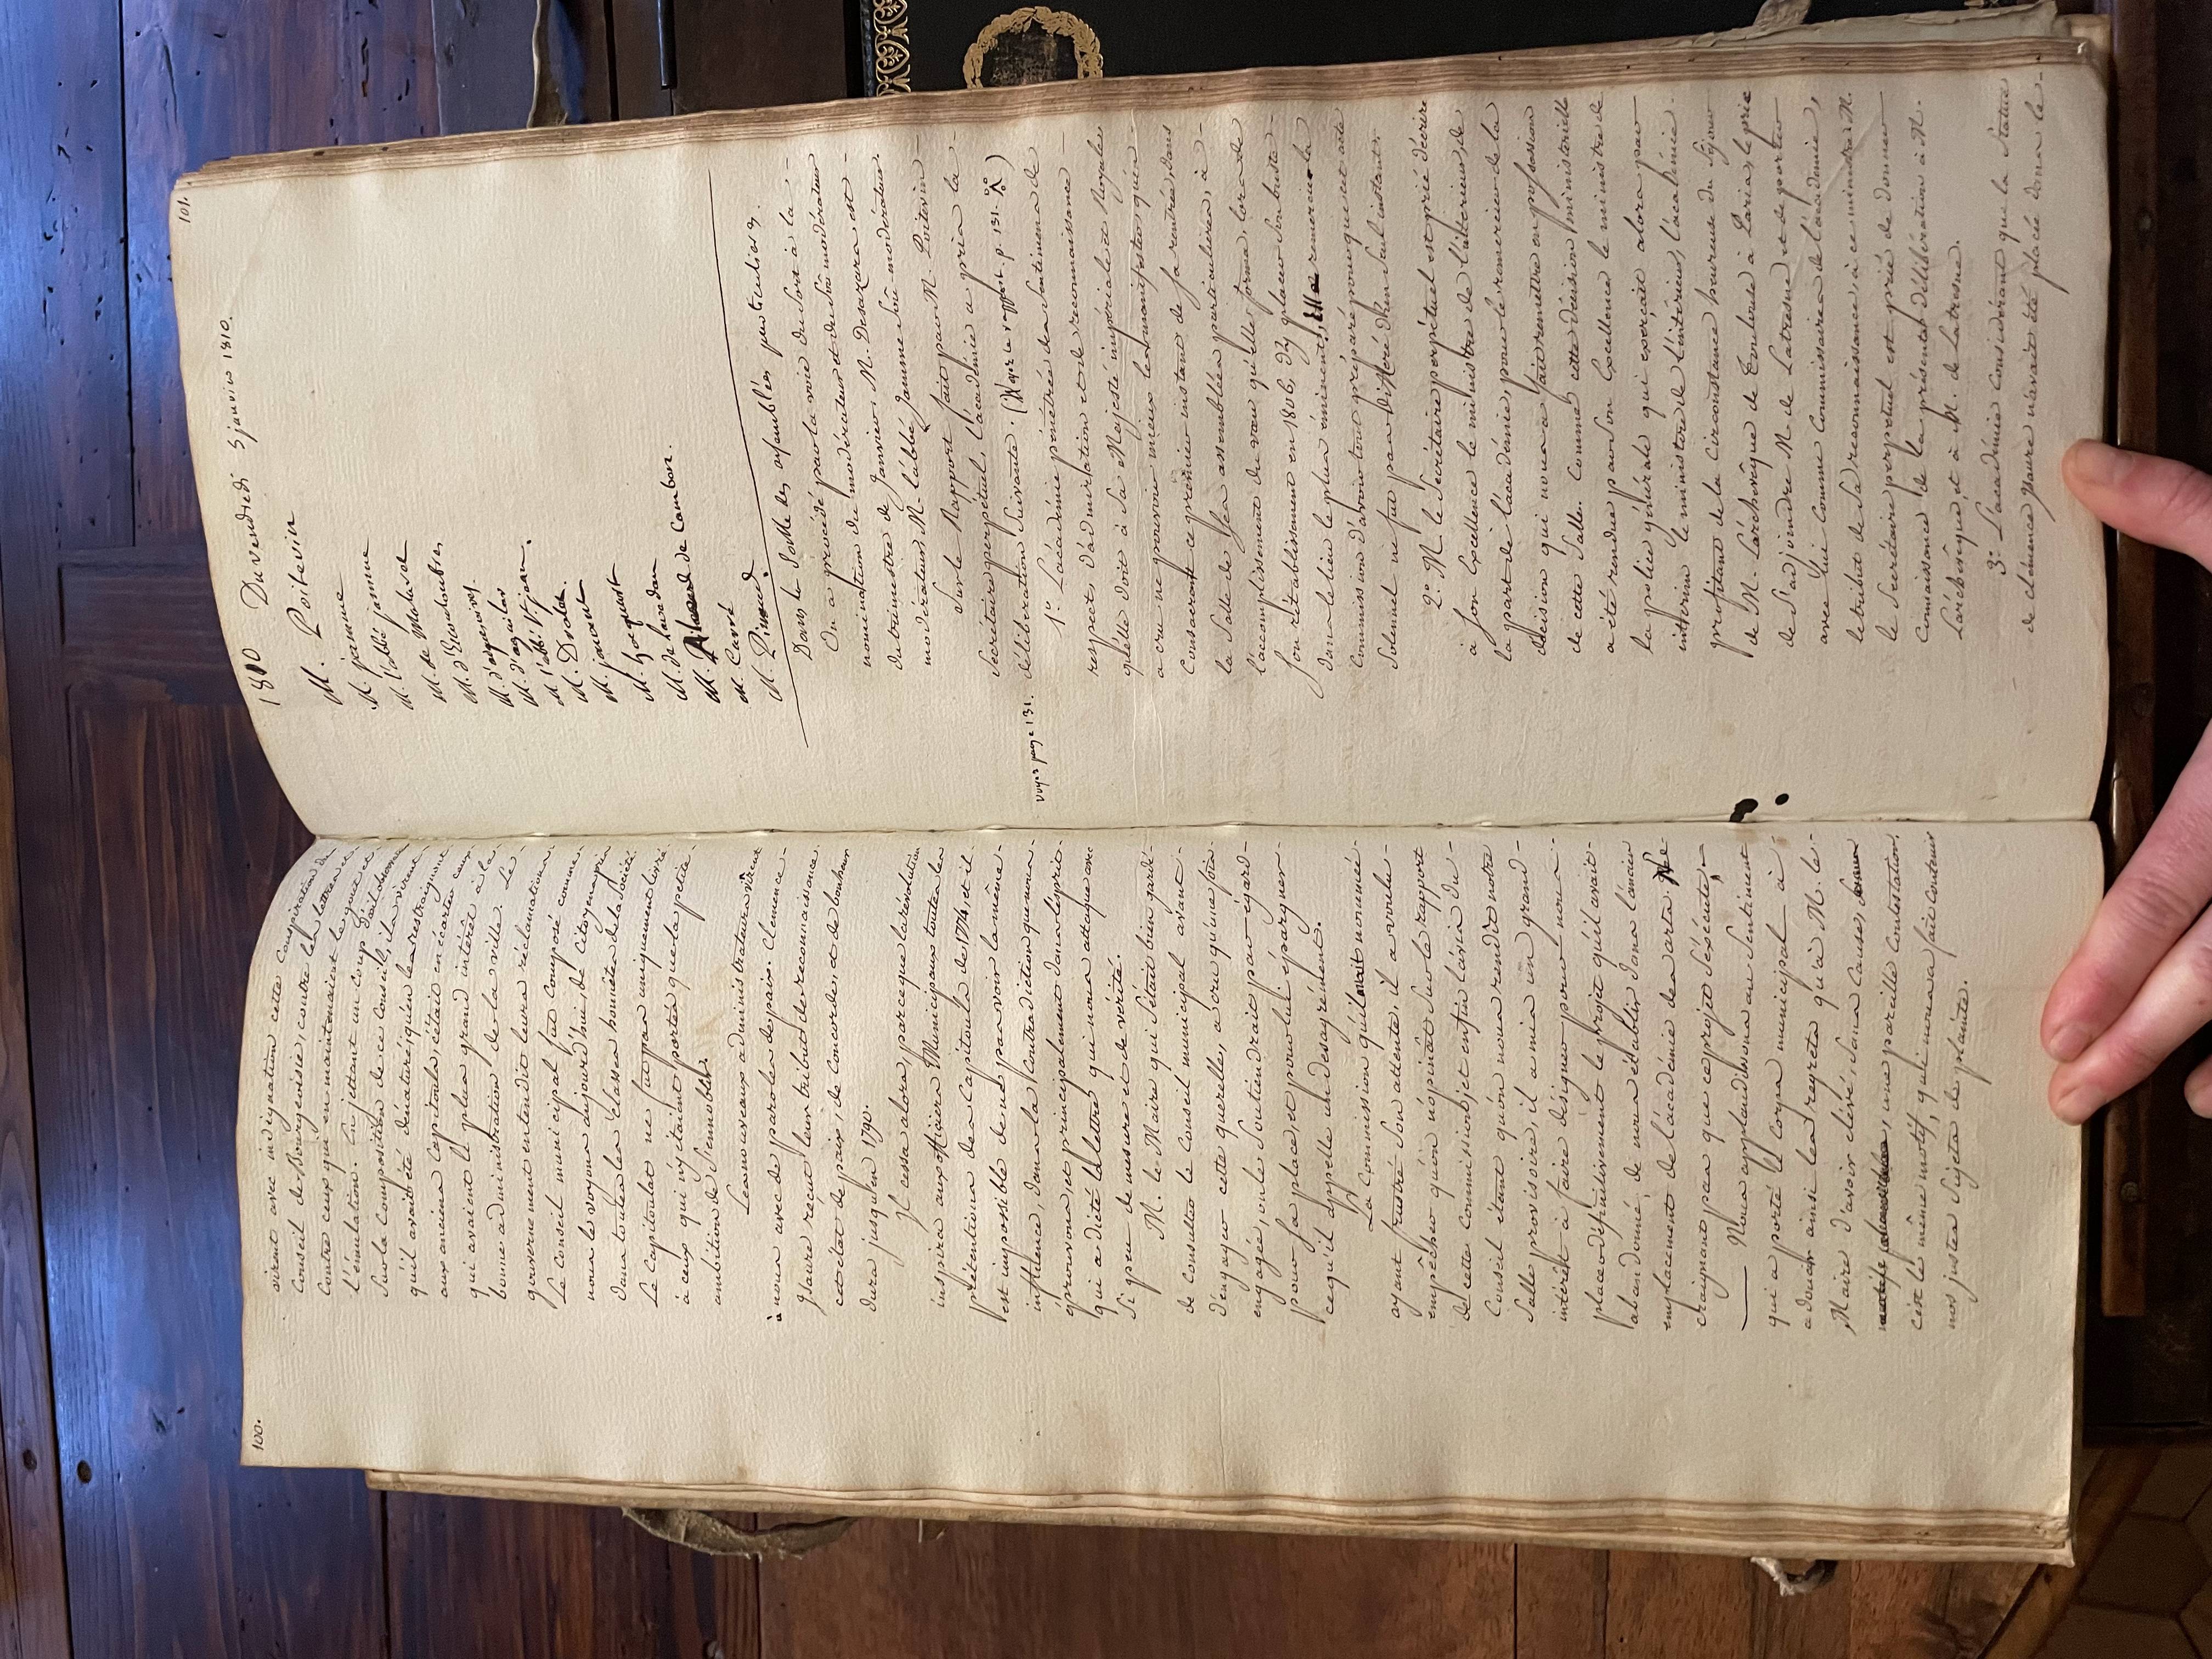 100.
virent avec indignation cette conspiration du
Conseil de Bourgeoisie, contre les lettres et
contre ceux qui en maintenaient le gout et
l'émulation. En jettant un coup d'œil
sur la composition de ce Conseil, ils virent
qu'il avait été dénaturé; qu'en le restraignant
aux anciens Capitouls, c'était en écarter ceux
qui avaient le plus grand intérêt à la
bonne administration de la ville. Le
gouvernement entendit leurs réclamations
Le Conseil municipal fut composé comme
nous le voyons aujourd'hui, de Citoyens pris
dans toutes les classes honnêtes de la société.
Le Capitoulat ne fut pas uniquement livré
à ceux qui n'y étaient portés que la petite
ambition de s'ennoblir.
Les nouveaux administrateurs vinrent
à nous avec des paroles de paix. Clemence
Isaure reçut leur tribut de reconnaissance
cet état de paix, de concorde, et de bonheur
dura jusqu'en 1790.
Il cessa alors, parce que la révolution
inspira aux officiers Municipaux toutes les
prétentions des Capitouls de 1774, et il
est impossible de ne pas voir la même
influence, dans la contradiction que nous
éprouvons, et principalement dans l'esprit
qui a dicté la lettre qui nous attaque avec
si peu de mesure et de vérité.
M. le Maire qui s'était bien gardé
de consulter le Conseil municipal avant
d'engager cette querelle, a cru qu'une fois
engagée, on le soutiendrait par égard
pour sa place, et pour lui épargner
ce qu'il appelle un desagrément.
La commission qu'il avait nommée
ayant frustré son attente, il a voulu
empêcher qu'on n'opinât sur le rapport
de cette commission; et enfin l'avis du
Conseil étant qu'on nous rendit notre
Salle provisoire, il a mis un grand
intérêt à faire désigner pour nous
placer définitivement le projet qu'il avait
abandonné, de nous établir dans l'ancien
emplacement de l'académie des arts, ne
craignant pas que ce projet s'exécute.
Nous applaudissons au sentiment
qui a porté le Corps municipal à
adoucir ainsi les regrets qu'a M. le
Maire d'avoir élevé, sans cause,
une pareille contestation.
c'est le même motif, qui nous fait contenir
nos justes sujets de plainte.
101.
1810 Du vendredi 5 janvier 1810.
M. Poitevin
M. jamme
M. l'abbé jamme
M. de Malaret
M. d'Escouloubre
M. d'aiguesvives.
M. d'aguilar
M. l'abbé St jean.
M. Dralet.
M. jamme
M. de Cambon.
M. Carré
M. Pinaud
Dans la Salle des assemblées particulières.
On a procédé par la voie du Sort à la
nomination du modérateur et du Sous modérateur
du trimestre de Janvier. M. Desazars est
modérateur, M. l'abbé Jamme Sous-modérateur
Sur le Rapport fait par M. Poitevin
Secrétaire perpétuel, l'académie a pris la
délibération Suivante. (Voyez le rapport p. 131.)
voyez page 131.
1°. L'académie pénétrée des sentimens de
respect d'admiration et de reconnaissance
qu'elle doit à Sa Majesté impériale et Royale
a cru ne pouvoir mieux les manifester, qu'en
consacrant ce premier instant de sa rentrée, dans
la Salle de ses assemblées particulières, à
l'accomplissement du vœu qu'elle forma, lors de
son rétablissement en 1806, d'y placer Son buste
dans le lieu le plus éminent; elle remercie la
Commission d'avoir tout préparé pour que cet acte
solennel ne fut pas différé d'un seul instant.
2°. M. le Secrétaire perpétuel est prié d'écrire
à son Excellence le ministre de l'intérieur, de
la part de l'académie, pour le remercier de la
décision qui nous a fait remettre en possession
de cette Salle. Comme cette décision ministerielle
a été rendue par Son Excellence le ministre de
la police générale qui exerçait alors par
interim le ministere de l'intérieur, l'académie
profitant de la circonstance heureuse du séjour
de M. L'archevêque de Toulouse à Paris, le prie
de s'adjoindre M. de Latresne et de porter
avec lui comme Commissaires de l'académie,
le tribut de Sa reconnaissance, à ce ministre. M.
le Secrétaire perpetuel est prié de donner
connaissance de la présente délibération à M.
L'archevêque, et à M. de Latresne.
3°. L'académie considérant que la Statue
de clémence Isaure n'avait été placée dans le